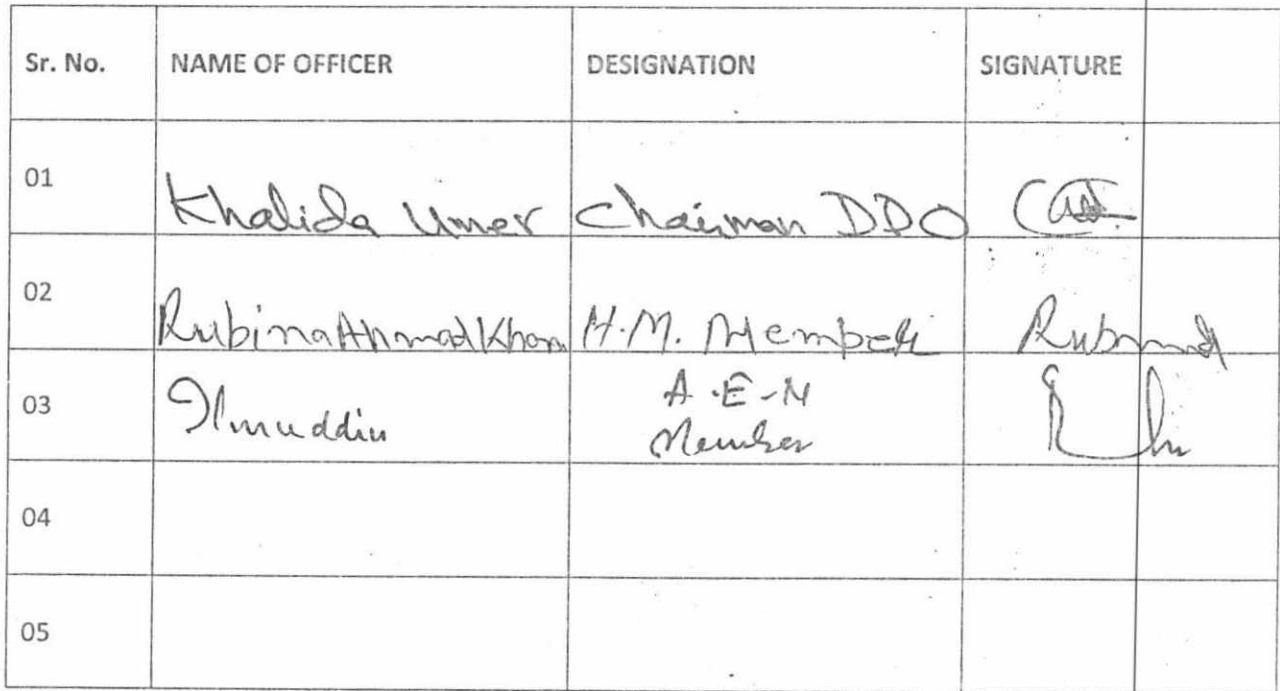 Sr. No. NAME OF OFFICER DESIGNATION SIGNATURE
01 Khalida Umer Chairman DDO
02 Rubina Ahmad Khan H.M. Member
03 Ilmuddin A.E-N
Member
04
05